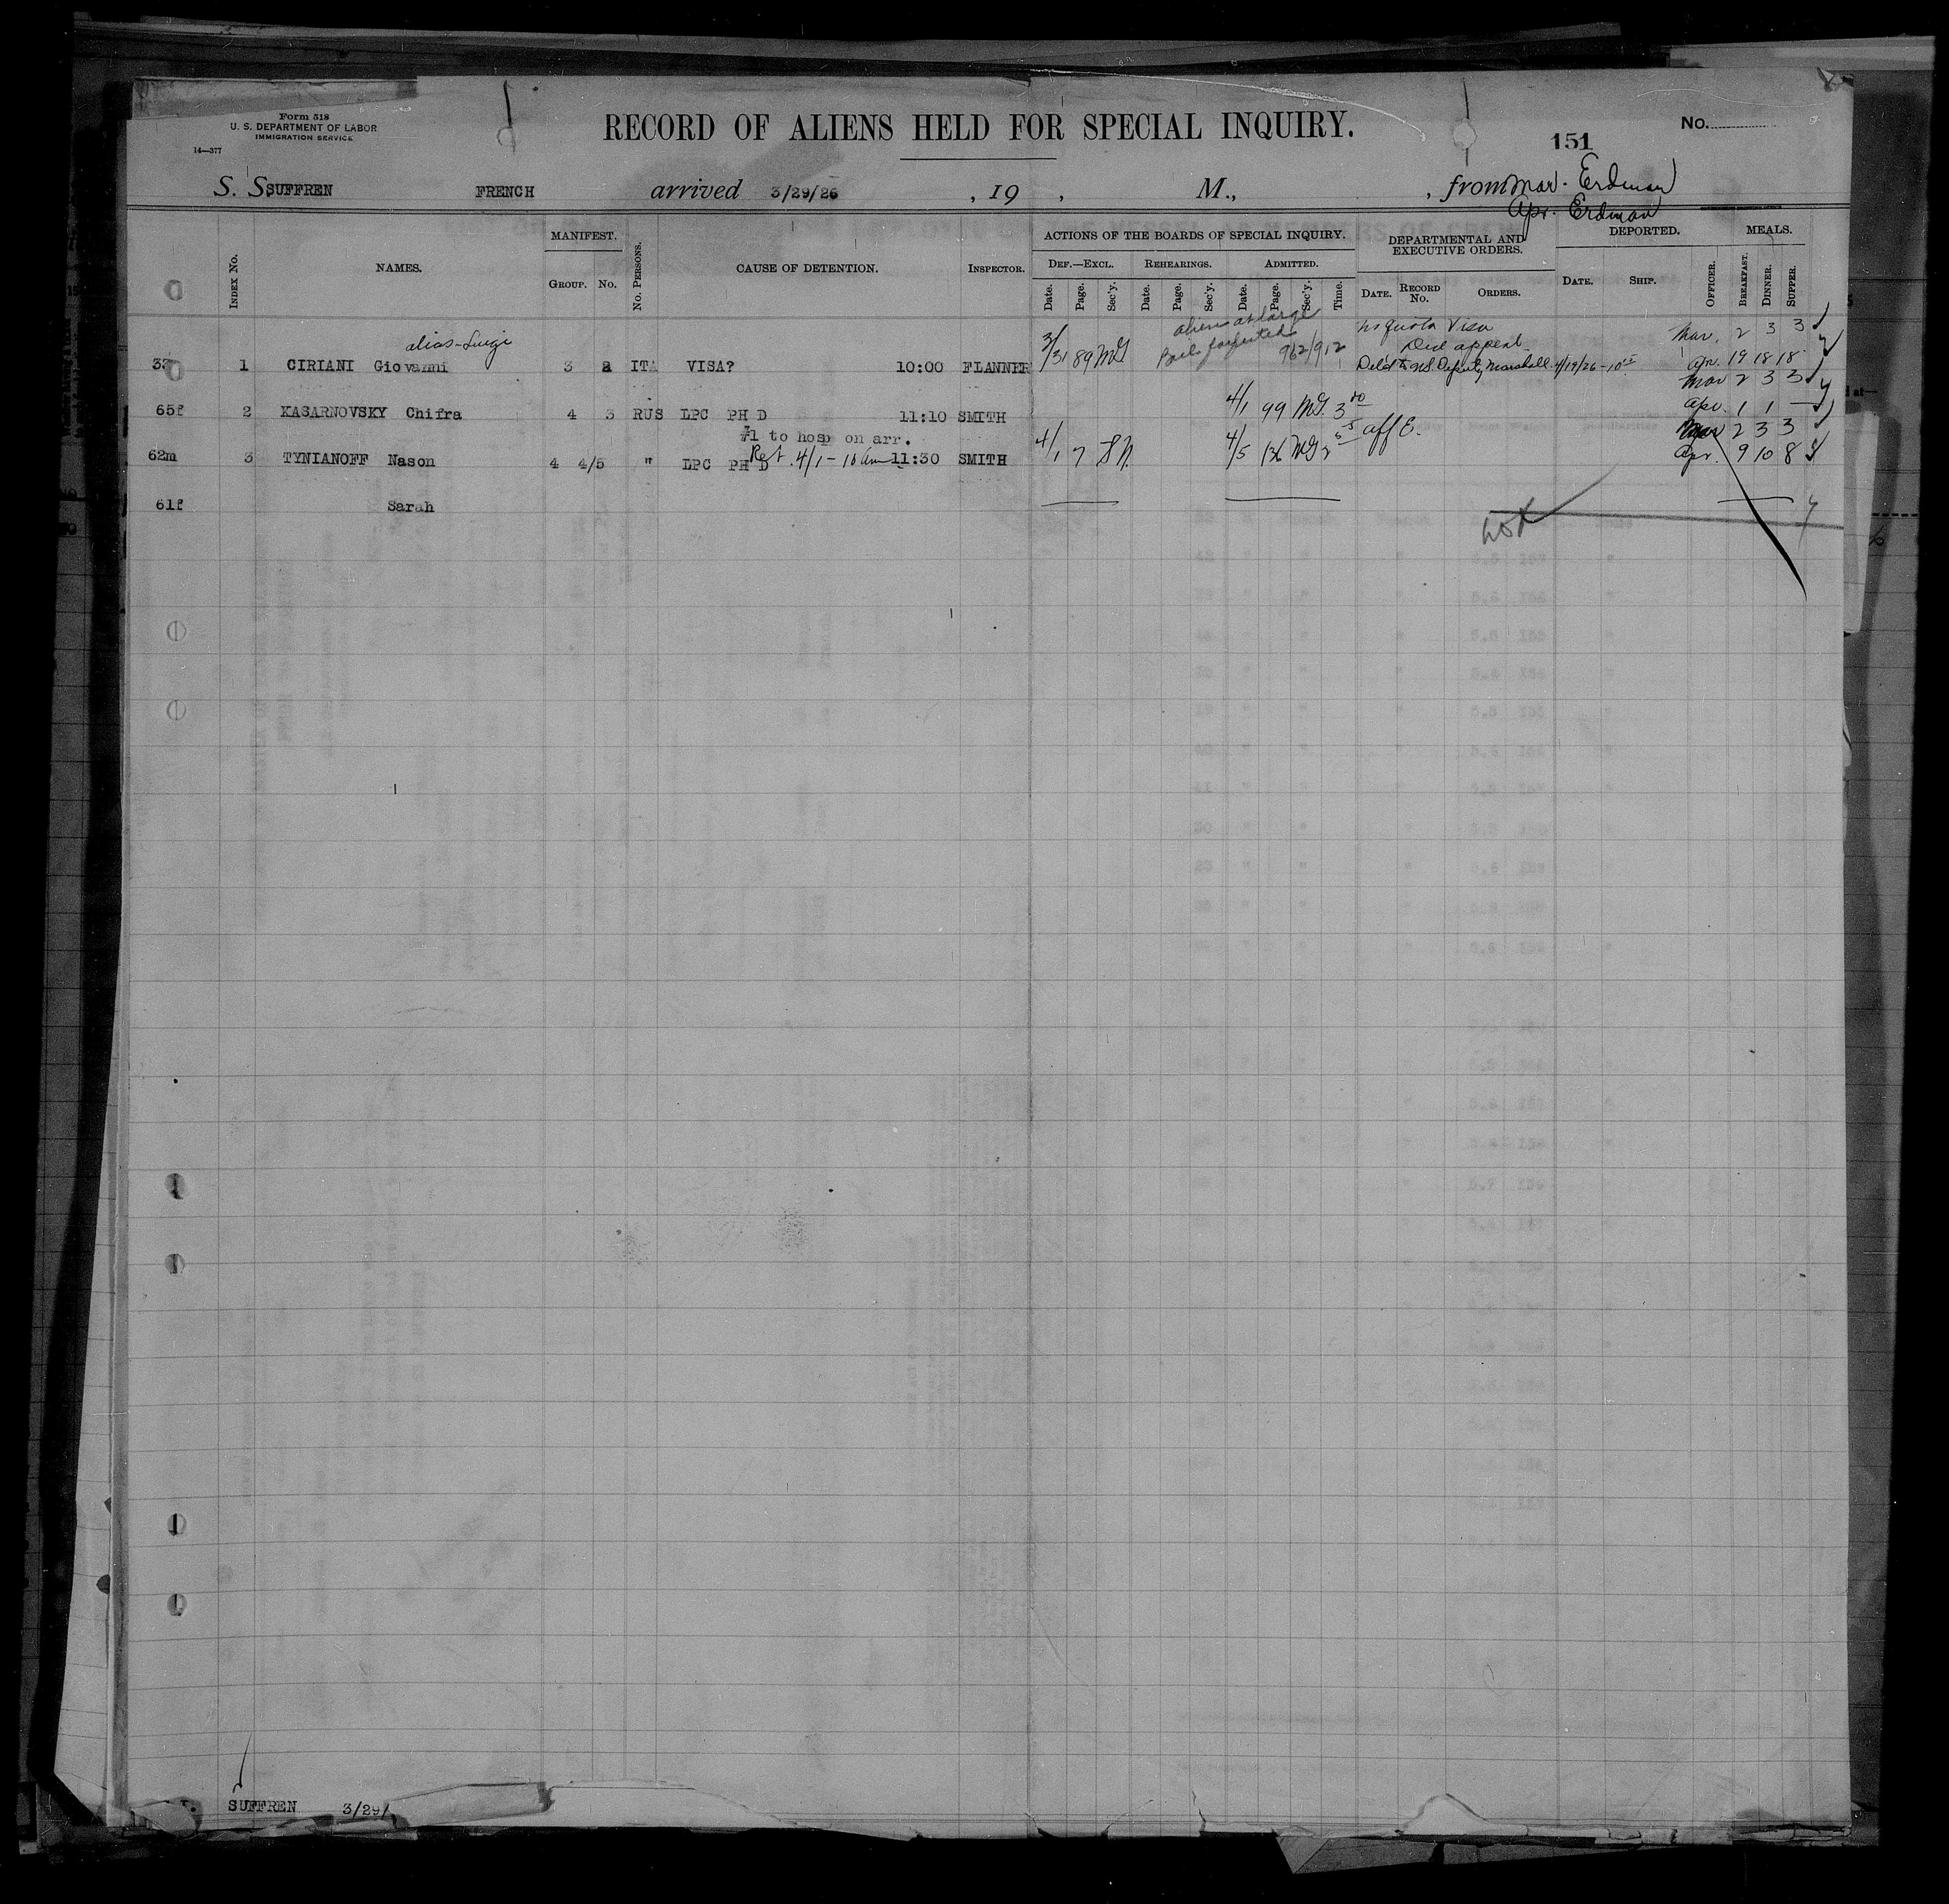 Form 518
U. S. DEPARTMENT OF LABOR
IMMIGRATION SERVICE
14—377
RECORD OF ALIENS HELD FOR SPECIAL INQUIRY.
151
No.
S. S. SUFFREN FRENCH arrived 3/29/26 , 19 , M., , from Mar. Erdman
Apr. Erdman
INDEX NO. NAMES. MANIFEST. GROUP. NO. NO. PERSONS. CAUSE OF DETENTION. INSPECTOR. ACTIONS OF THE BOARDS OF SPECIAL INQUIRY. DEPARTMENTAL AND EXECUTIVE ORDERS. DEPORTED. MEALS.
DEF.—EXCL. REHEARINGS. ADMITTED.
Date. Page. Sec'y. Date. Page. Sec'y. Date. Page. Sec'y. Time. DATE. RECORD NO. ORDERS. DATE. SHIP. OFFICER. BREAKFAST. DINNER. SUPPER.
alias-Luigi aliens at large no quota Visa Mar. 2 3 3
Bail forfeited 962/912 appeal
33 1 CIRIANI Giovanni 3 ITA VISA? 10:00 FLANNER 3/31 89 McG Deld to U.S. Deputy Marshall 4/19/26 - Apr. 19 18 18
Mar 2 3 3
65f 2 KASARNOVSKY Chifra 4 3 RUS LPC PH D 11:10 SMITH 4/1 99 McG. 3 Apr. 1 1 —
#1 to hosp on arr. aff E. Mar 2 3 3
62m 3 TYNIANOFF Nason 4 4/5 " LPC PH D Ret. 4/1 - 10 am 11:30 SMITH 4/1 7 4/5 136 McG Apr. 9 10 8
61f Sarah
SUFFREN 3/29/